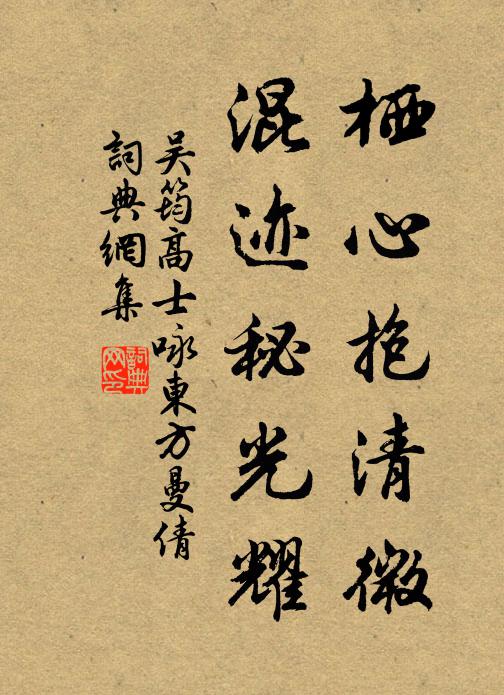 栖心抱清微
混迹秘光耀
吴筠高士咏東方曼倩
詞典網集
詞典网印